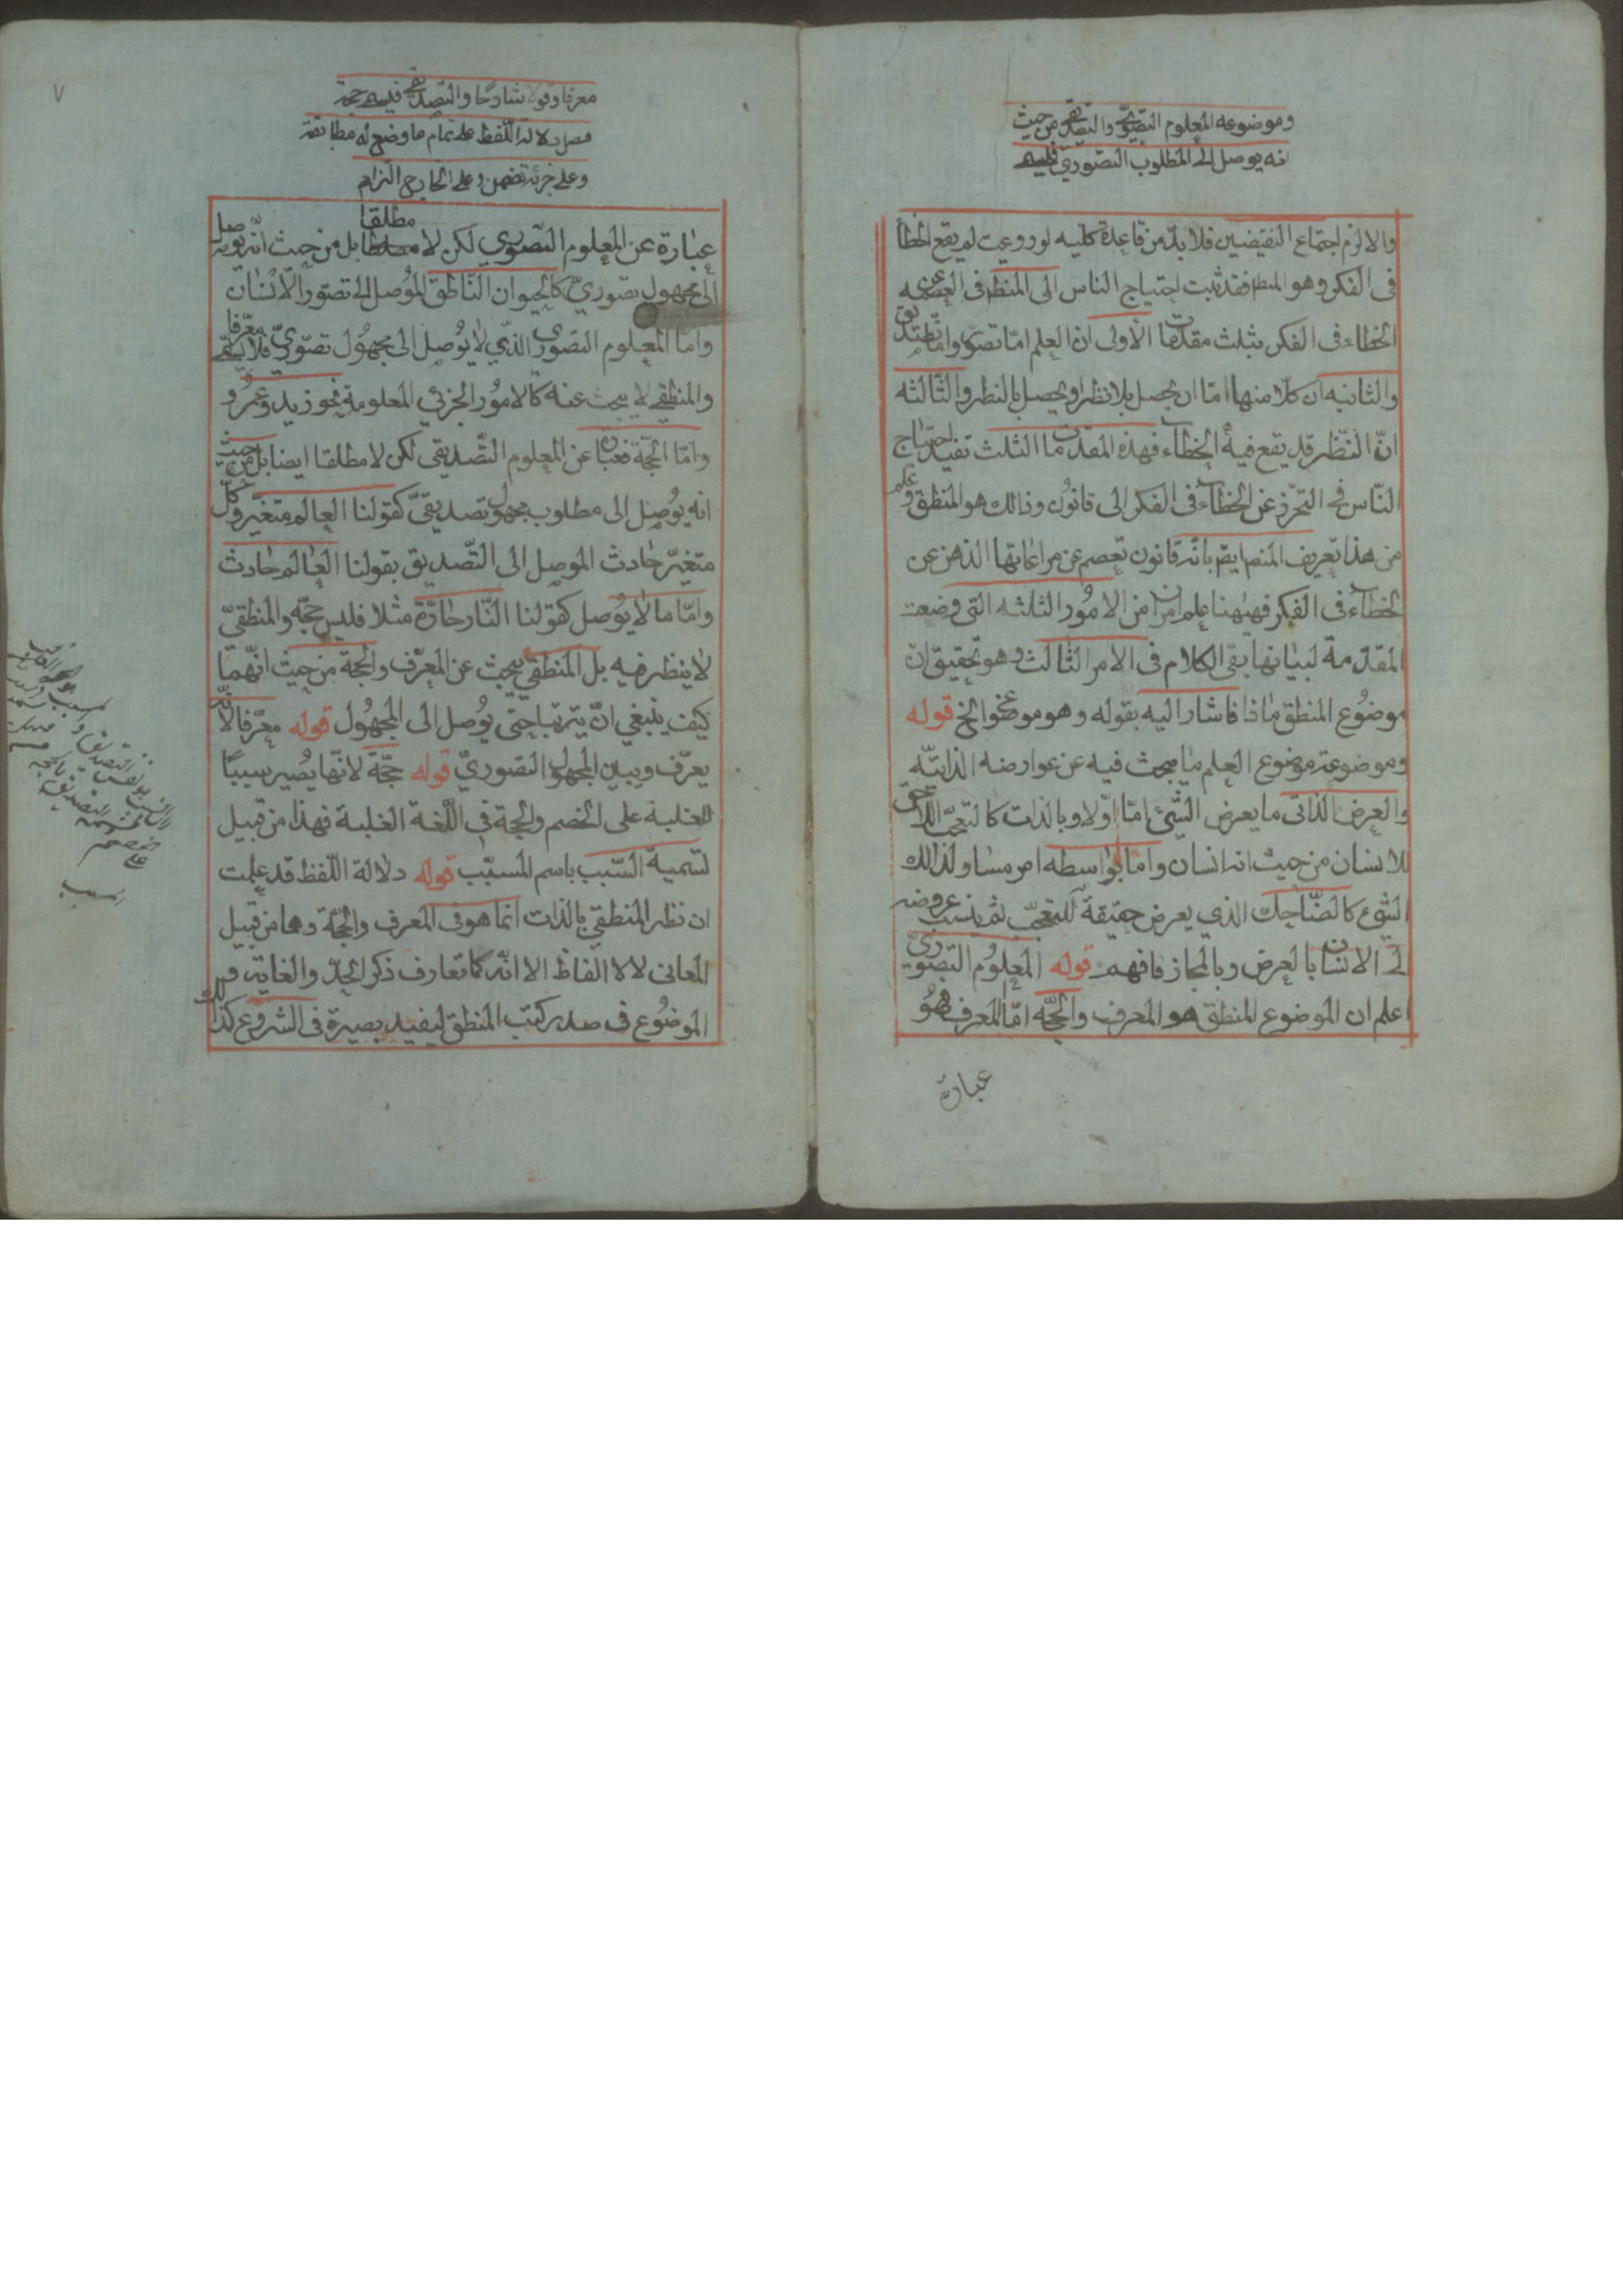 وموضوعه المعلوم التصوري والتصديقي من حيث
انه يوصل الى المطلوب التصوري فيسمى
والا لزم اجتماع النقيضين فلا بد من قاعدة كليه لو روعيت لم يقع الخطأ
فى الفكر وهو المنطق فقد ثبت احتياج الناس الى المنطق فى العصمة عن
الخطاء فى الفكر بثلث مقدمات الأولى ان العلم امّا تصوّر وامّا تصديق
والثانيه ان كلا منهما امّا ان يحصل بلا نظر او يحصل بالنظر والثّالثه
انّ النّظر قد يقع فيه الخطاء فهذه المقدمات الثلث تفيد احتياج
النّاس فى التحرّز عن الخطاء فى الفكر الى قانون وذالك هو المنطق وعلم
من هذا تعريف المنطق ايضا بانّه قانون تعصم عن مراعاتها الذهن عن
الخطاء فى الفكر فههنا علم امران من الامُور الثلثه التى وضعت
المقدّمة لبيانها بقى الكلام فى الامر الثالث وهو تحقيق ان
موضُوع المنطق ماذا فاشار اليه بقوله وهو موضوعه الخ قوله
وموضوعه موضوع العلم ما يبحث فيه عن عوارضه الذاتيّه
والعرض الذاتى ما يعرض الشّئ امّا اوّلا وبالذات كالتعجّب اللاحق
للانسان من حيث انه انسان وامّا بواسطه امر مساو لذالك
الشئ كالضّاحك الذي يعرض حقيقة للتعجّب ثم ينسب عروضه
الى الانسان بالعرض وبالمجاز فافهم قوله المعلُوم التصوّرىّ
اعلم ان الموضوع المنطق هو المعرف والحجّه امّا المعرف فهُو
عبارة
معرفا وقولا شارحا والتصديقي فيسمى حجة
فصل دلالة اللّفظ على تمام ما وضع له مطابقة
وعلى جزئه تضمن وعلى الخارج التزام
عبارة عن المعلوم التّصوّري لكن لا مطلقا بل من حيث انّه يوصل
الى مجهول تصوريّ كالحيوان النّاطق المُوصل الى تصوّر الانسان
وامّا المعلوم التصوري الذّي لا يُوصل الى مجهُول تصوّريّ فلا يسمّى معرّفا
والمنطقى لا يبحث عنه كالامُور الجزئي المعلومة نحو زيد وعمرُو
وامّا الحجّة فعبارة عن المعلوم التّصديقى لكن لا مطلقا ايضا بل من حيث
انه يُوصِل الى مطلوب مجهول تصديقىّ كقولنا العالم متغيّر وكلّ
متغيّر حادث الموصل الى التّصديق بقولنا العَالم حادث
وامّا ما لا يُوصل كقولنا النّار حارّة مثلا فليس حجّه والمنطقىّ
لا ينظر فيه بل المنطقي يبحث عن المعرّف والحجة من حيث انّهما
كيف ينبغي انّ يترتبا حتى يُوصل الى المجهُول قوله معرّفا لانّه
يعرّف ويبين المجهول التصوريّ قوله حجّة لانّها يُصير سببًا
للغلبة على الخصم والحجة فى اللّغة الغلبة فهذا من قبيل
تسمية السّبب باسم المسبّب قوله دلالة اللّفظ قد علمت
ان نظر المنطقي بالذات انما هو فى المعرف والحجّة وهما من قبيل
المعانى لا الالفاظ الا انّه كما تعارف ذكر الحدّ والغاية و
الموضُوع فى صدر كتب المنطق ليفيد بصيرة فى الشروع كذلك